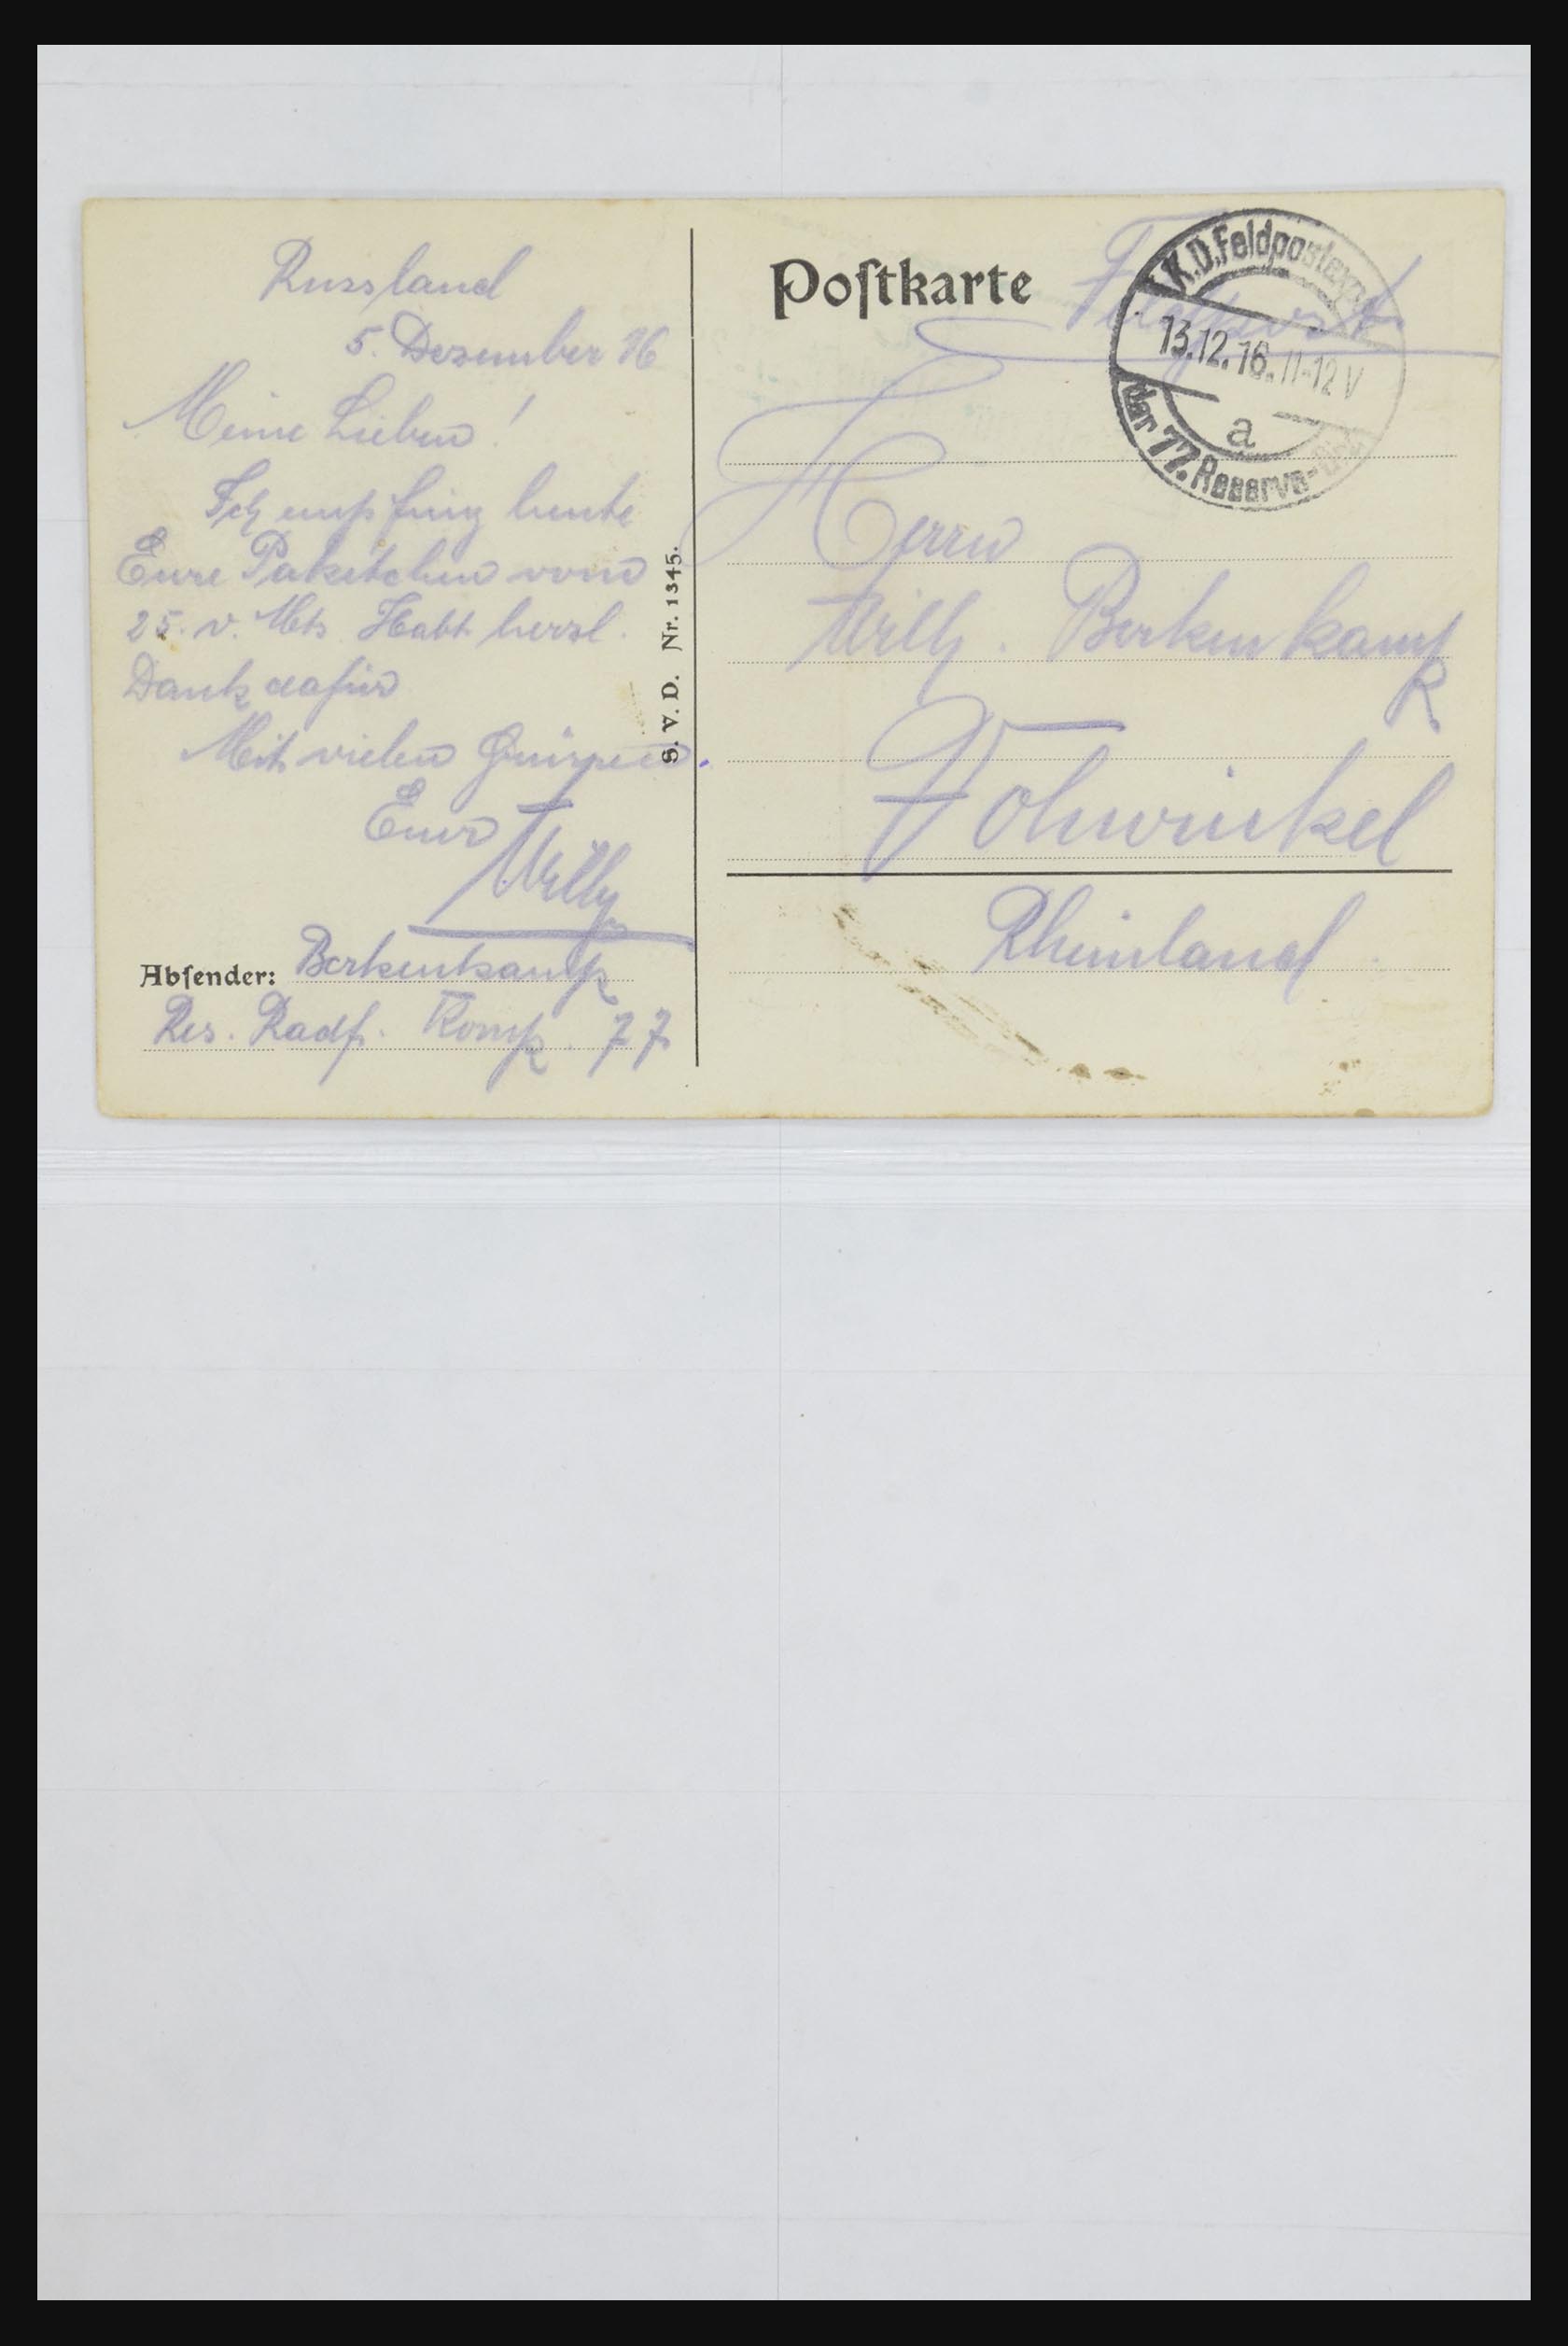 Russland
5. Dezember 16
Meine Lieben!
Ich empfing heute
Eure Paketchen vom
25. v. Mts Habt herzl.
Dank dafür
Mit vielen Grüssen
Euer
Willy
Absender: Berkenkamp
Res. Radf. Komp. 77
S. V. D. Nr. 1345.
Postkarte
Feldpost
K.D. Feldpostexp.
13.12.16. 11-12 V
a
der 77. Reserve-Div
Herrn
Wilh. Berkenkamp
Vohwinkel
Rheinland